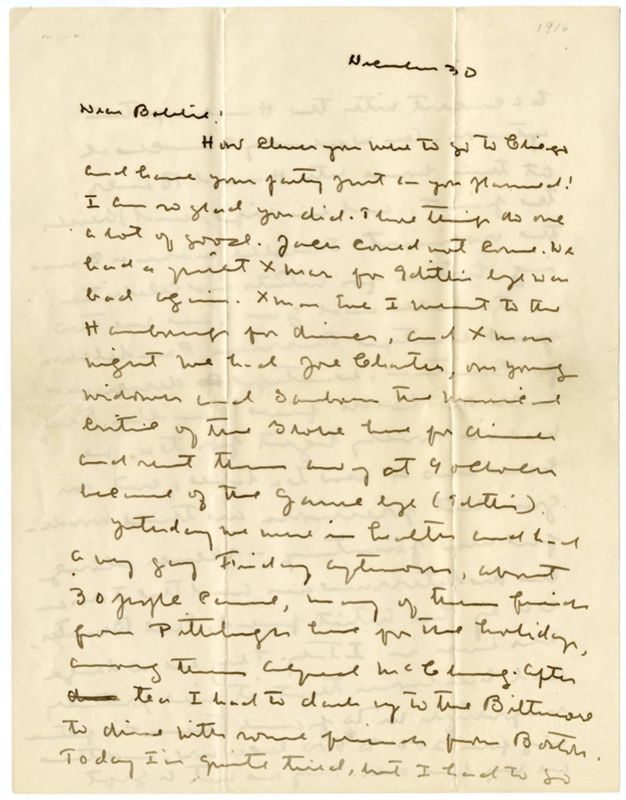 1916
December 30
Dear Bobbie!
How clever you were to go to Chicago
and have your party just as you planned!
I am so glad you did. Those things do one
a lot of good. Jack could not come. We
had a quiet Xmas for Edith's eye was
bad again. Xmas Eve I went to the
Hambourgs for dinner, and Xmas
night we had Joe Charles, our young
widower and Sanborn the musical
critic of the Globe here for dinner
and sent them away at 9 oclock
because of the game eye (Edith's).
Yesterday we were in health and had
a very gay Friday afternoon, about
30 people came, many of them friends
from Pittsburgh here for the holidays,
among them McClung. After
tea I had to dash up to the Biltmore
to dine with some friends from Boston.
Today I'm quite tired, but I had to go